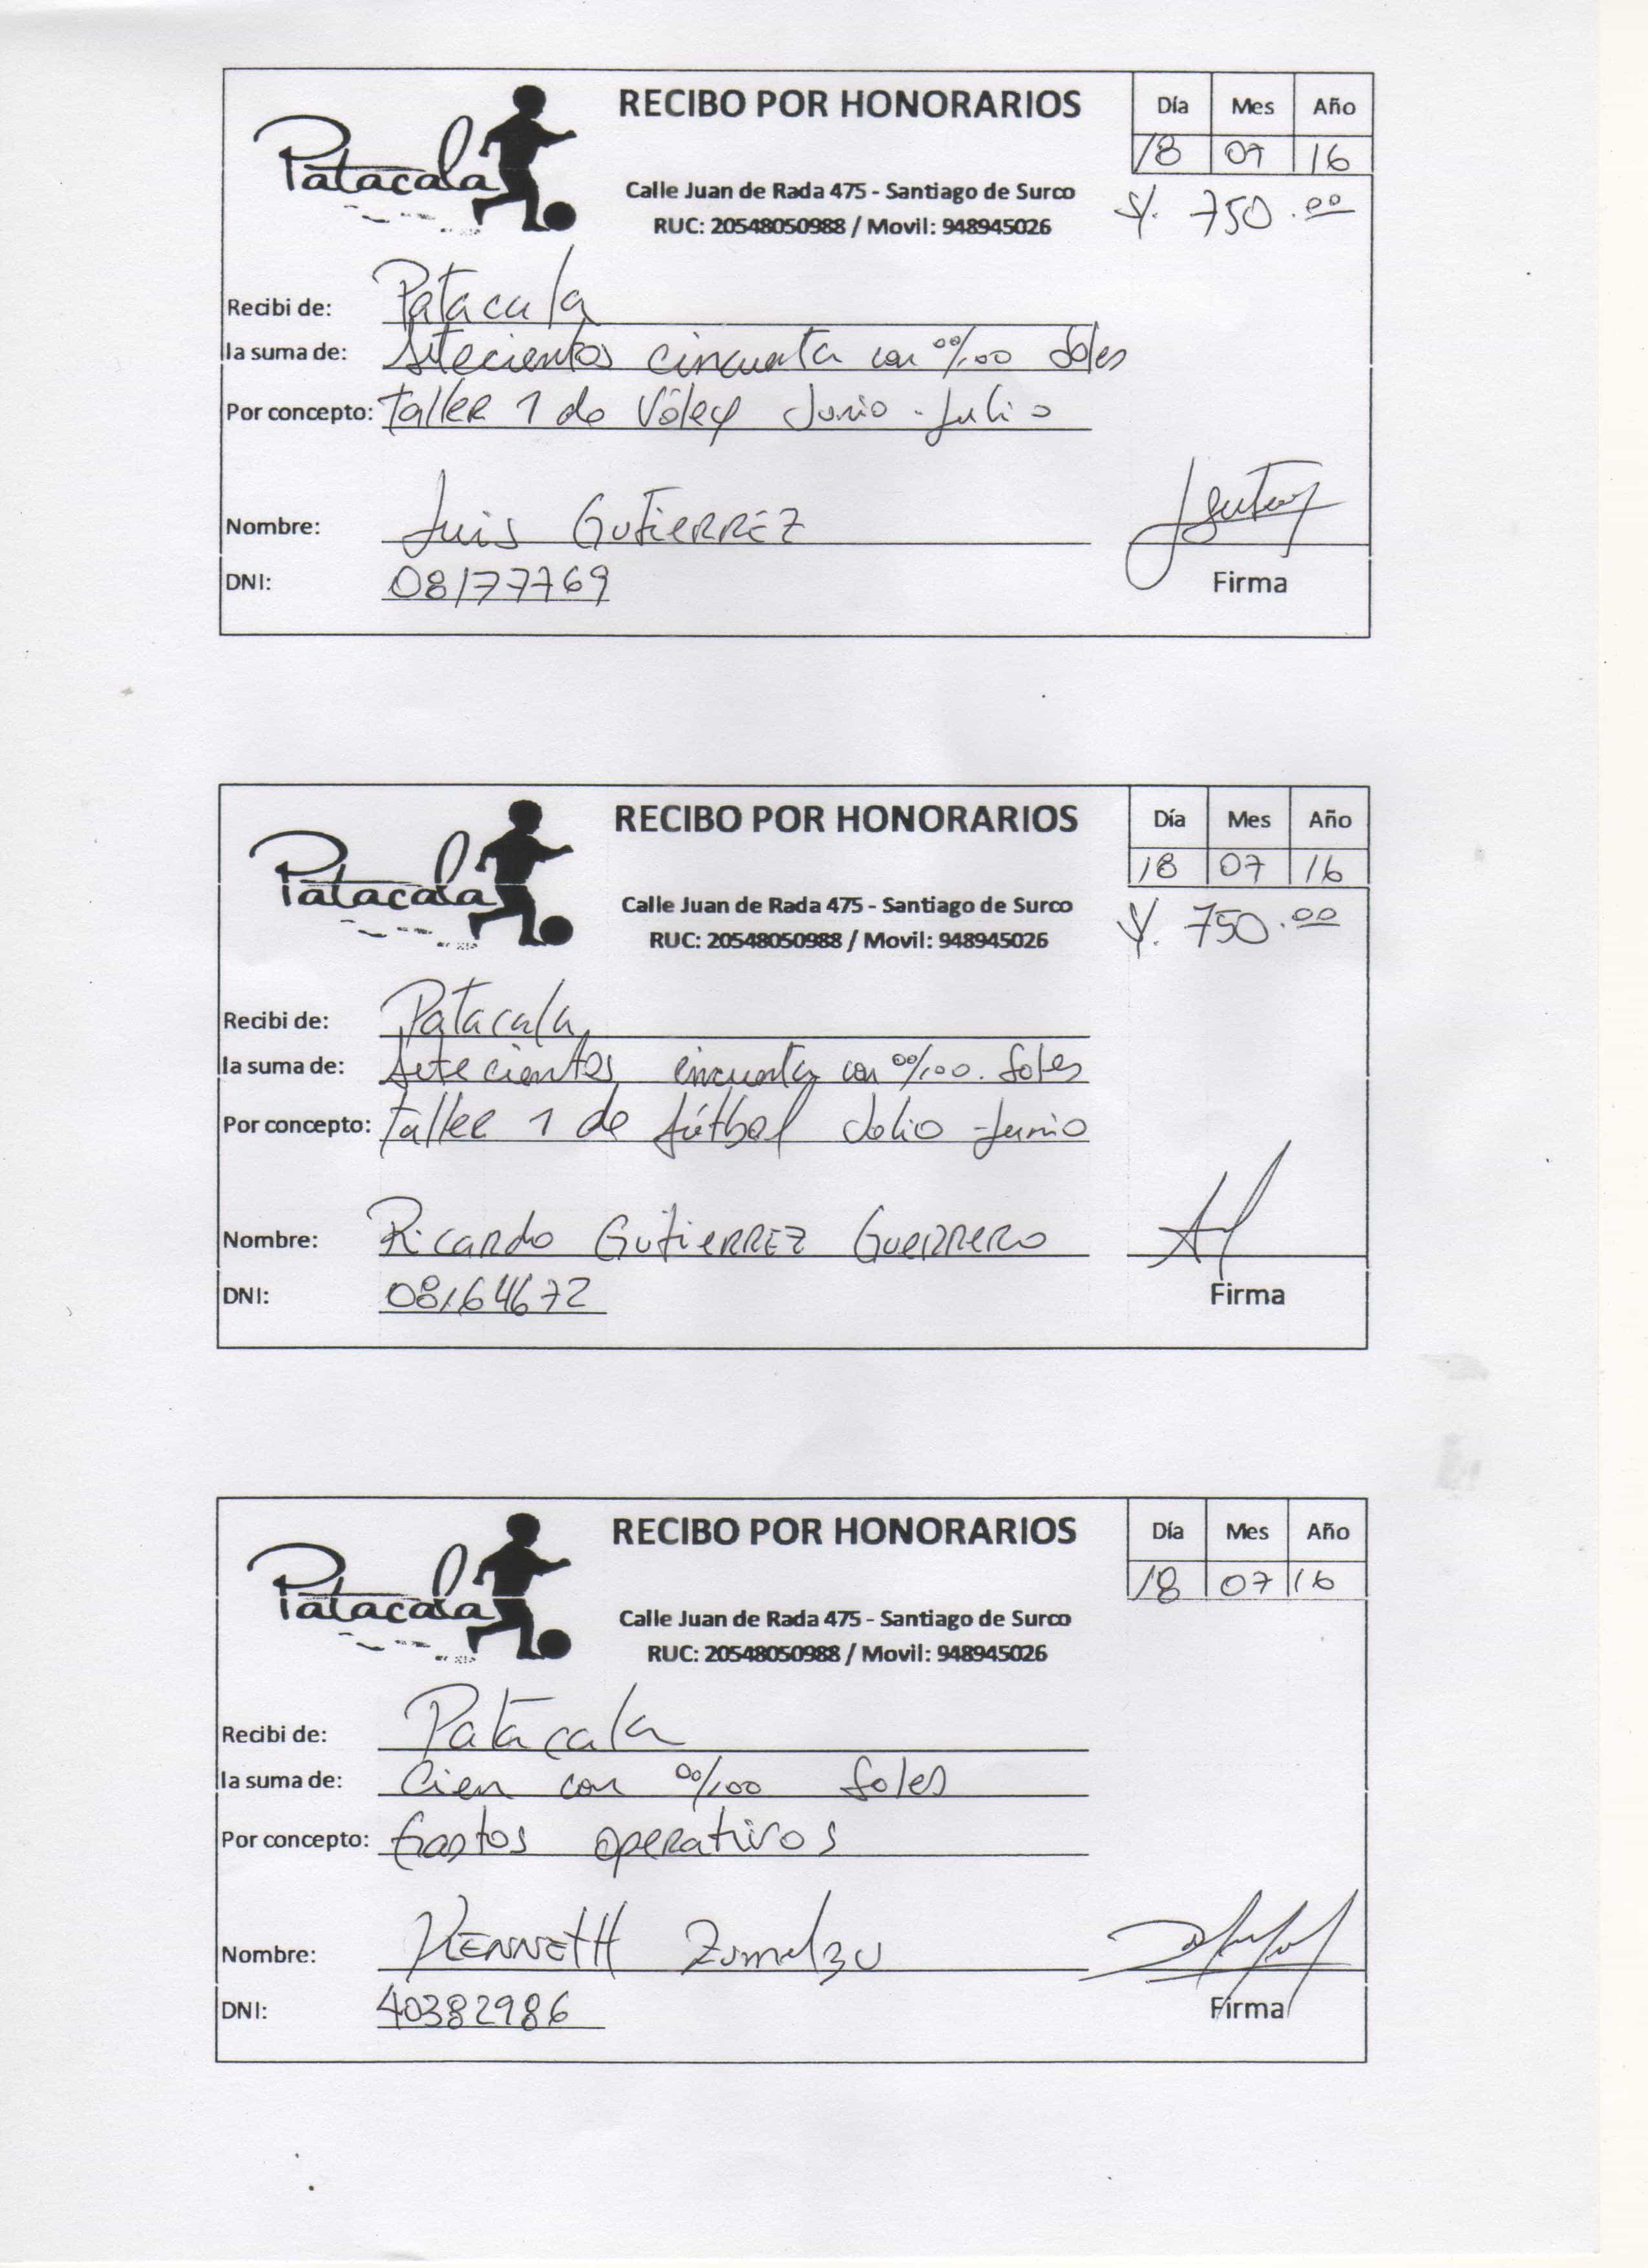 Patacala
RECIBO POR HONORARIOS
Día Mes Año
18 07 16
Calle Juan de Rada 475 - Santiago de Surco
RUC: 20548050988 / Movil: 948945026
S/. 750.00
Recibi de: Patacala
la suma de: Setecientos cincuenta con 00/100 Soles
Por concepto: Taller 1 de Vóley Junio - Julio
Nombre: Luis GutiERREZ
DNI: 08177769
Firma
Patacala
RECIBO POR HONORARIOS
Día Mes Año
18 07 16
Calle Juan de Rada 475 - Santiago de Surco
RUC: 20548050988 / Movil: 948945026
S/. 750.00
Recibi de: Patacala
la suma de: Setecientos cincuenta con 00/100. Soles
Por concepto: Taller 1 de fútbol Julio - Junio
Nombre: Ricardo GutiERREZ GuERRERO
DNI: 08164672
Firma
Patacala
RECIBO POR HONORARIOS
Día Mes Año
18 07 16
Calle Juan de Rada 475 - Santiago de Surco
RUC: 20548050988 / Movil: 948945026
Recibi de: Patacala
la suma de: Cien con 00/100 Soles
Por concepto: Gastos operativos
Nombre: KENNETH Zumelzu
DNI: 40382986
Firma